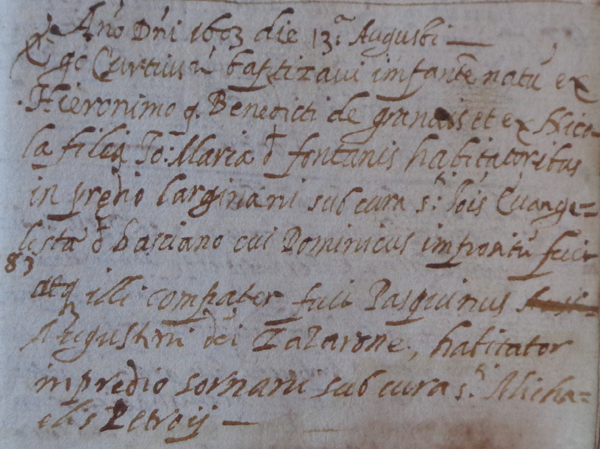 Año Dñi 1603 die 13.ª Augusti —
Ego Curtius ũ baptizavi infantẽ natũ ex
Hieronimo q. Benedicti de grandis et ex Nico=
la filia Jo: Maria d fontanis habitatoribus
in predio larginani sub cura s.ti lois Evange=
lista d basciano cui Dominicus impositũ fuit
83
atq illi compater fuit Pasquinus
Augustini dei Zazarone, habitator
in predio sornani sub cura s.ti Micha=
elis Petroij —